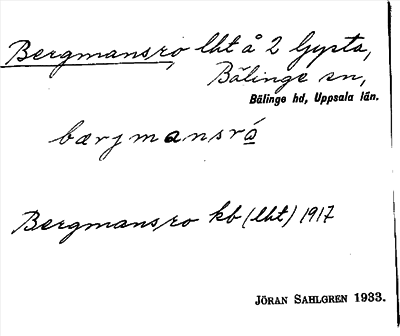 Bergmansro, lht å 2 Gysta,
Bälinge sn,
Bälinge hd, Uppsala län.
bærjmansró
Bergmansro kb (lht) 1917
JÖRAN SAHLGREN 1933.